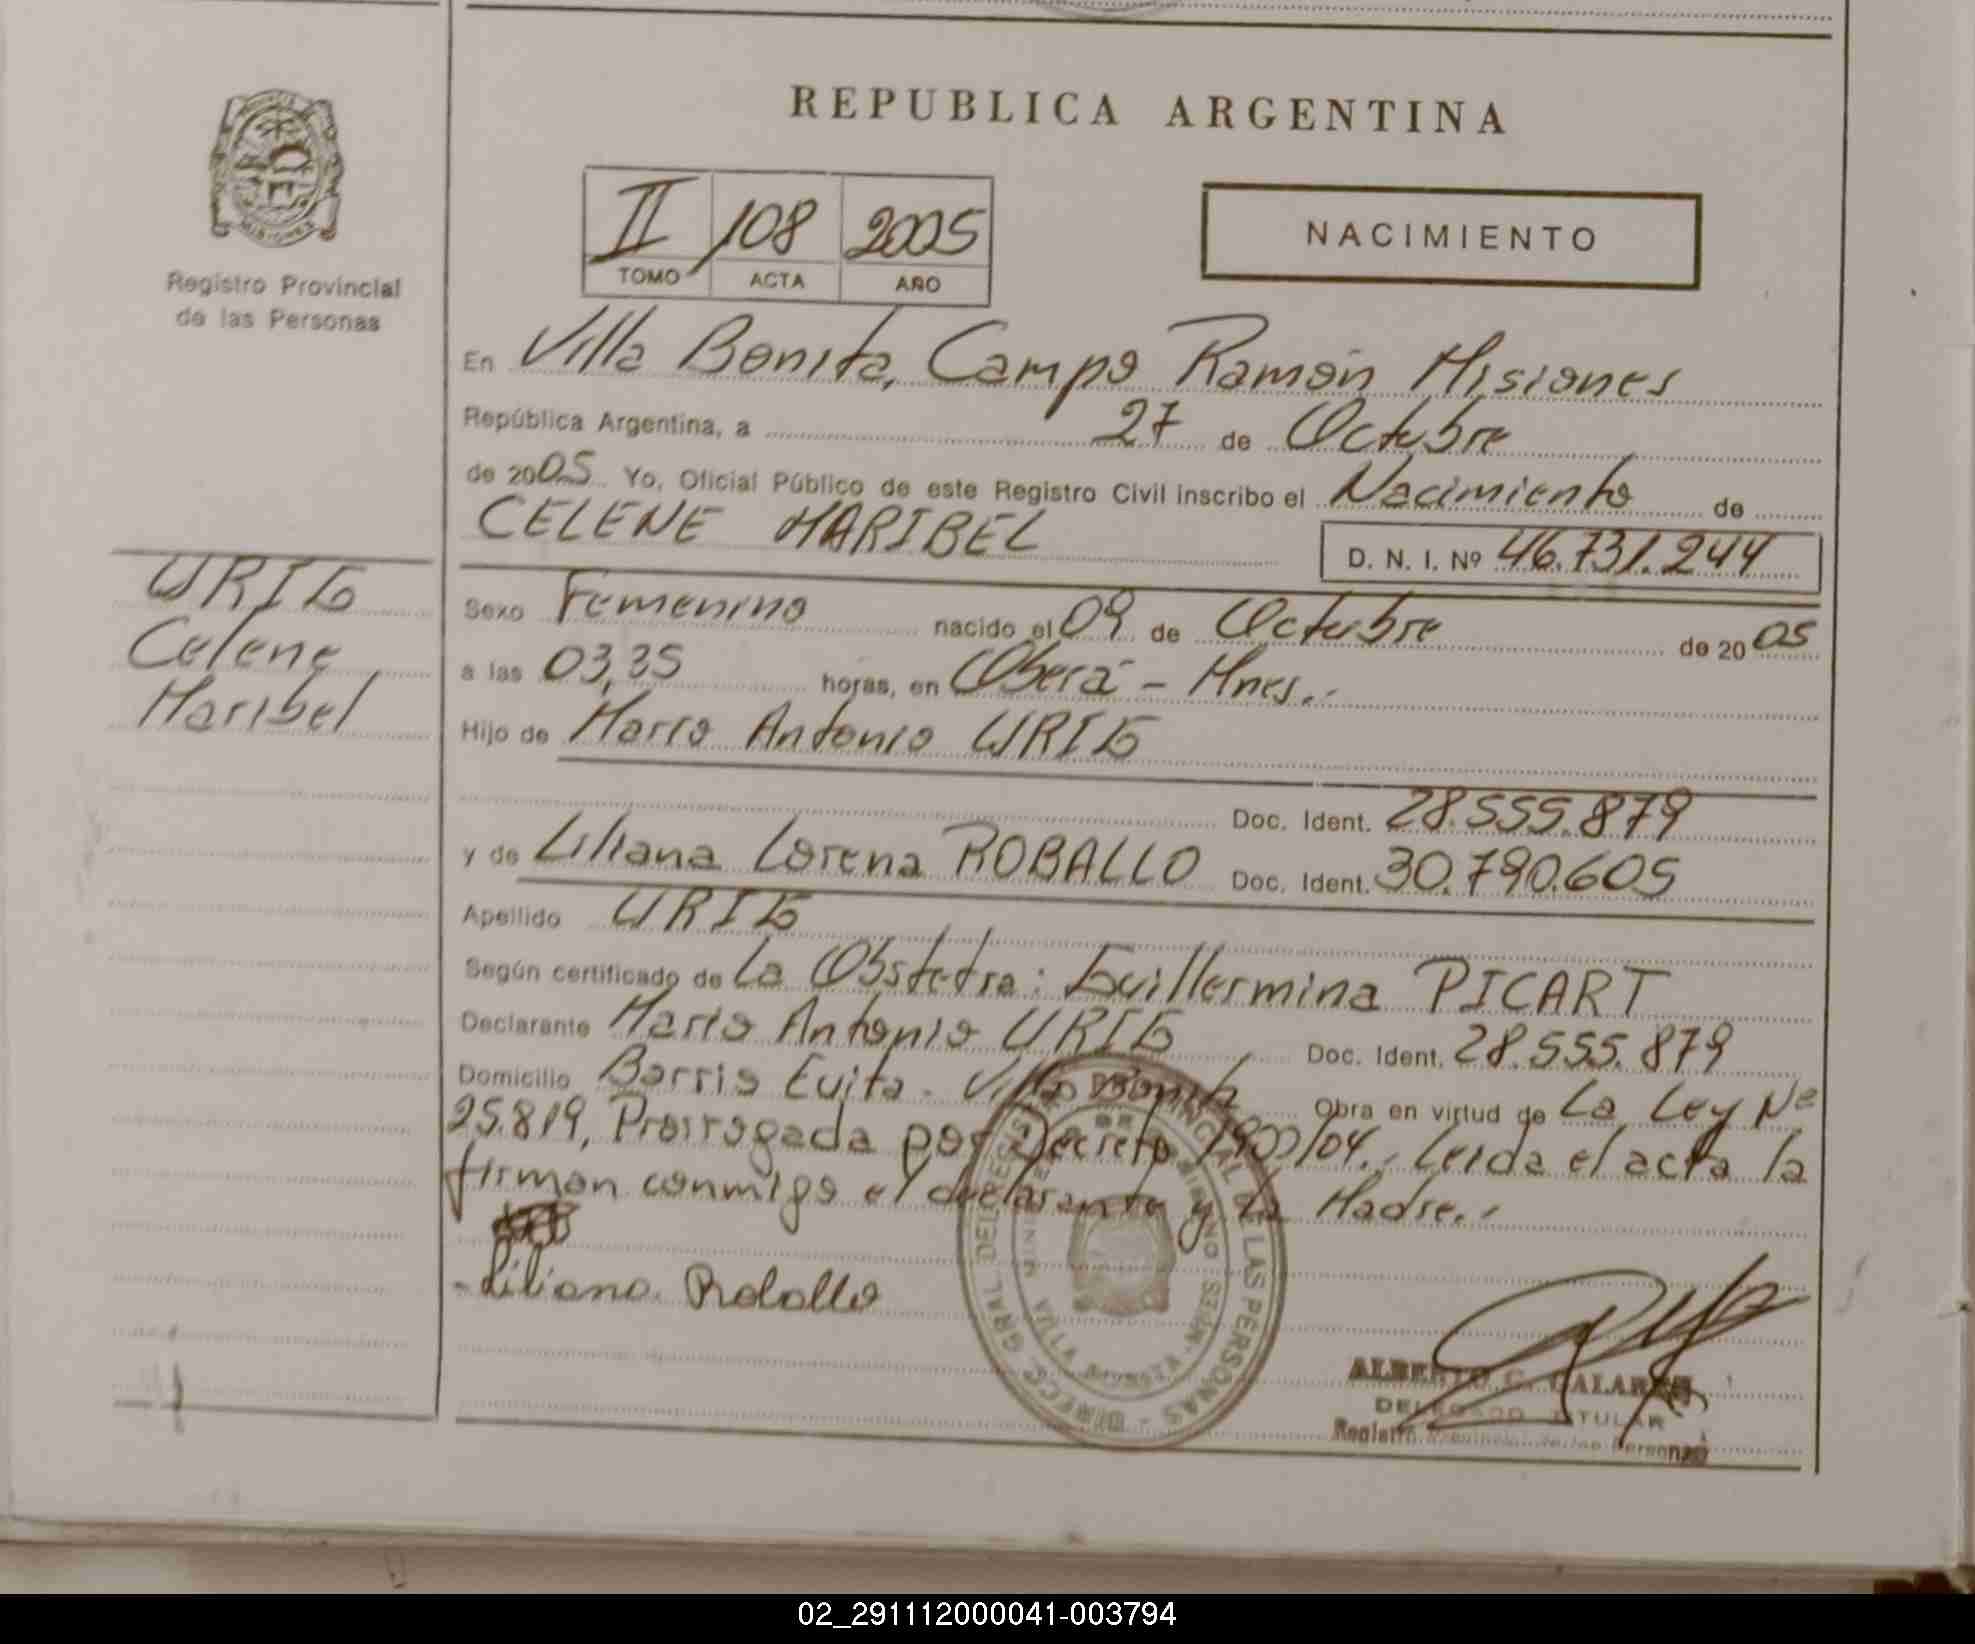 REPUBLICA ARGENTINA
II 108 2005
TOMO ACTA AÑO
NACIMIENTO
Registro Provincial
de las Personas
En Villa Bonita, Campo Ramón Misiones
República Argentina, a 27 de Octubre
de 2005 Yo, Oficial Público de este Registro Civil inscribo el Nacimiento de
CELENE MARIBEL D. N. I. Nº 46.731.244
URIG
Celene
Maribel
Sexo Femenino nacido el 09 de Octubre de 2005
a las 03,35 horas, en Oberá - Mnes.-
Hijo de Mario Antonio URIG
Doc. Ident. 28.555.879
y de Liliana Lorena ROBALLO Doc. Ident. 30.790.605
Apellido URIG
Según certificado de La Obstetra: Guillermina PICART
Declarante Mario Antonio URIG Doc. Ident. 28.555.879
Domicilio Barrio Evita - Villa Bonita Obra en virtud de La Ley Nº
25.819, Prorrogada por Decreto 1900/04.- Leída el acta la
firman conmigo el declarante y la Madre.-
Liliana Roballo
DIRECC. GRAL DEL REGISTRO PROVINCIAL DE LAS PERSONAS
VILLA BONITA - MNES
ALBERTO C.
DELEGADO TITULAR
Registro Provincial de las Personas
02_291112000041-003794